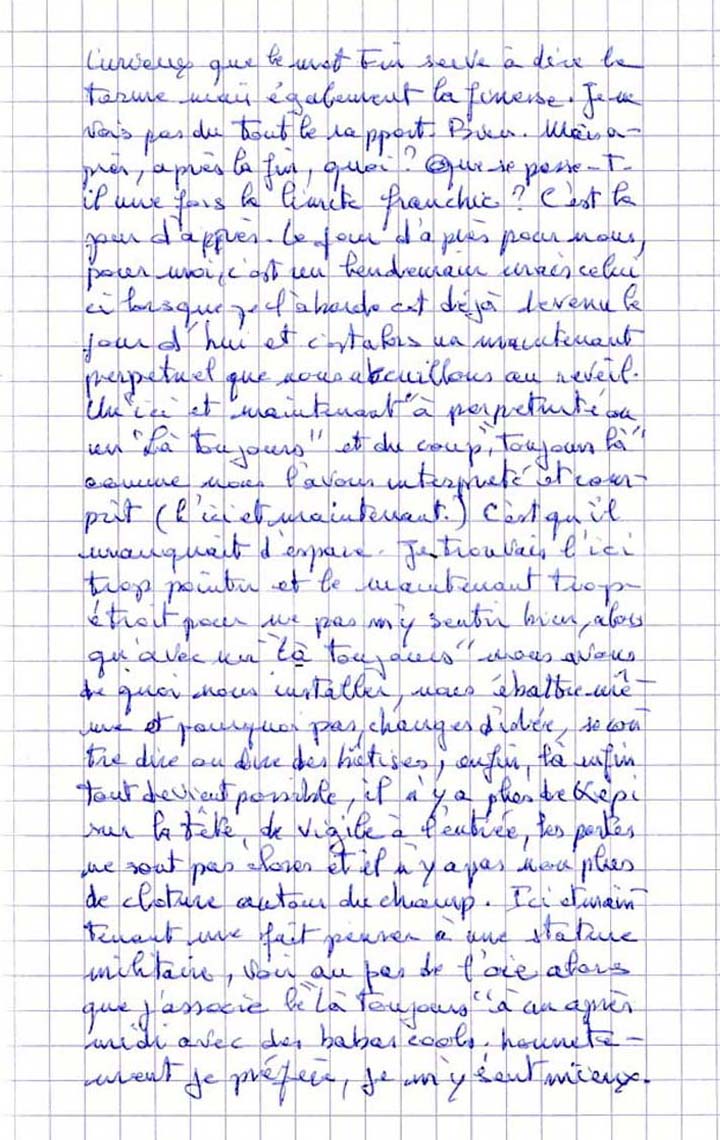 Curieux que le mot Fin serve à dire le
terme mais également la finesse. Je ne
vois pas du tout le rapport. Bien. Mais a-
près, après la fin, quoi ? Que se passe-t-
il une fois la limite franchie ? C'est le
jour d'après. Le jour d'après pour nous,
pour moi, c'est un lendemain mais celui
ci lorsque je l'aborde est déjà devenu le
jour d'hui et c'est alors un maintenant
perpetuel que nous accueillons au réveil.
Un "ici et maintenant" à perpetuité ou
un "Là toujours" et du coup, "toujours là"
comme nous l'avons interprété et com-
prit (l'ici et maintenant.) C'est qu'il
manquait d'espace. Je trouvais l'ici
trop pointu et le maintenant trop
étroit pour ne pas m'y sentir bien, alors
qu'avec un "Là toujours" nous avons
de quoi nous installer, nous ébattre mê-
me et pourquoi pas, changer d'idée, se con
tre dire ou dire des bêtises, enfin, là enfin
tout devient possible, il n'y a plus de Képi
sur la tête, de vigile à l'entrée, les portes
ne sont pas closes et il n'y a pas non plus
de cloture autour du champ. Ici et main
tenant me fait penser à une stature
militaire, voir au pas de l'oie alors
que j'associe le "Là toujours" à un après
midi avec des babas cools. honnête-
ment je préfère, je m'y sent mieux.